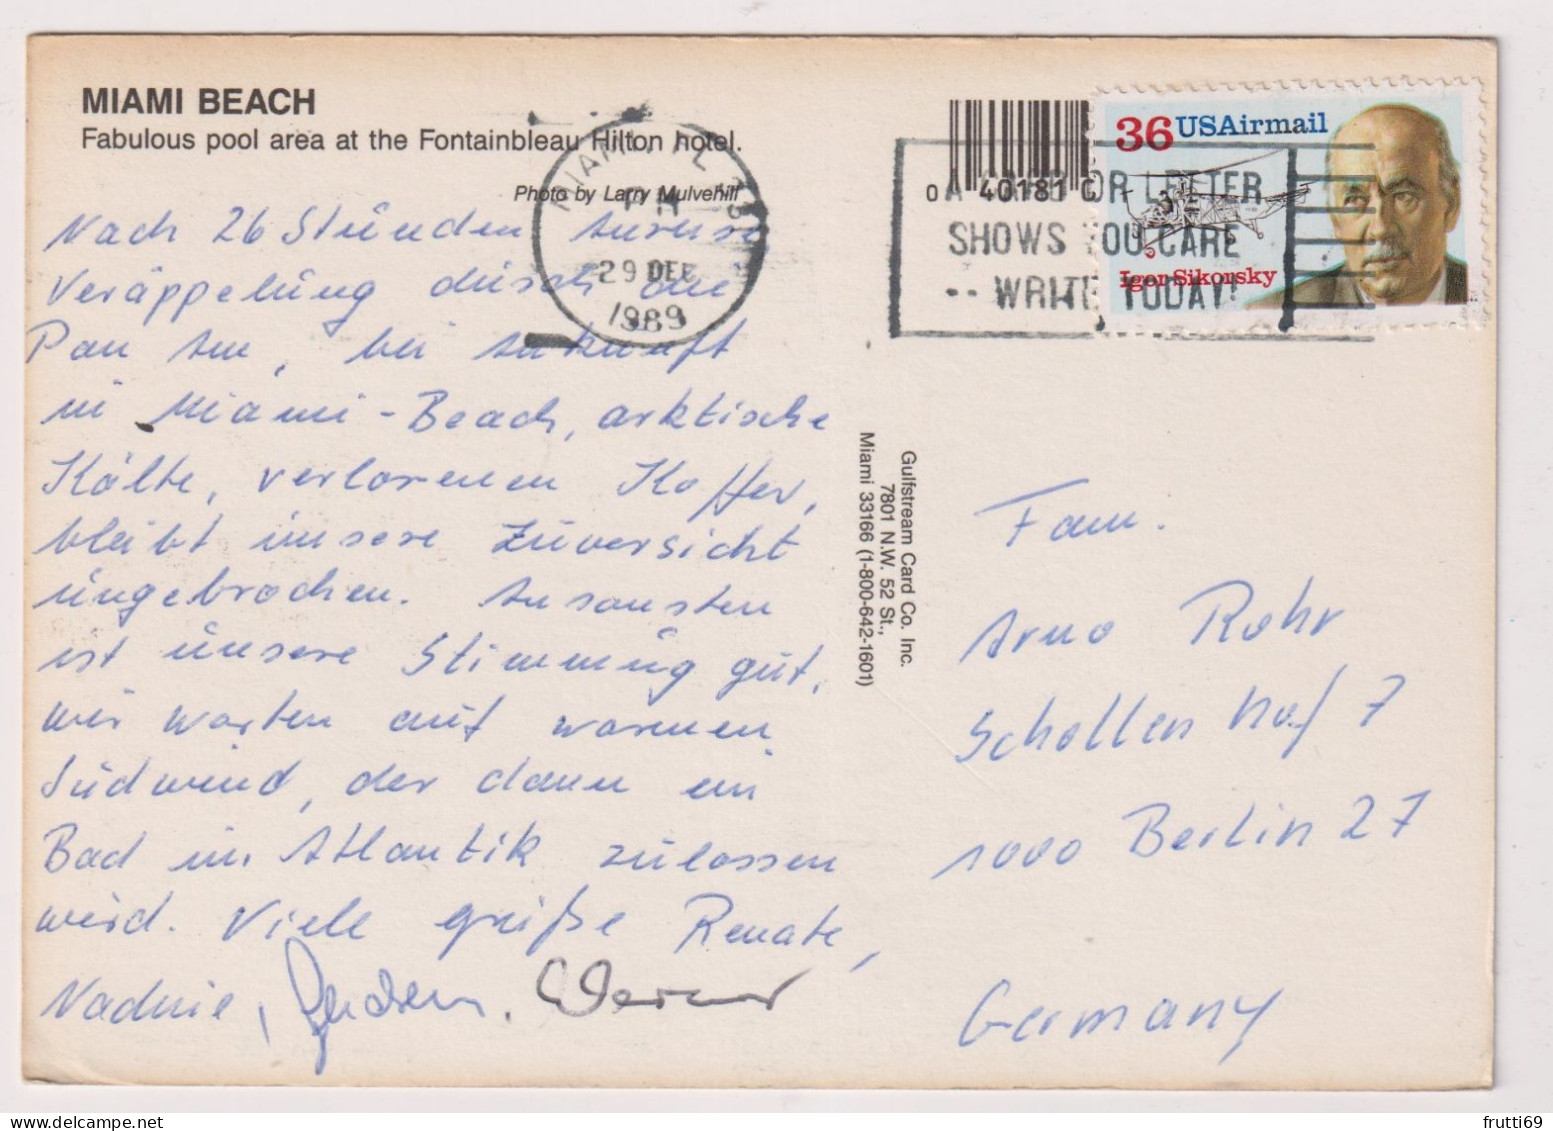 MIAMI BEACH
Fabulous pool area at the Fontainbleau Hilton hotel.
Photo by Larry Mulvehill
Nach 26 Stunden Anreise,
Veräppelung durch die
Pan Am, bei Ankunft
in Miami-Beach, arktische
Kälte, verlorenen Koffer,
bleibt unsere Zuversicht
ungebrochen. Ansonsten
ist unsere Stimmung gut,
wir warten auf warmen
Südwind, der dann ein
Bad im Atlantik zulassen
wird. Viele Grüße Renate,
Nadine, Werner
MIAMI, FL
PM
29 DEC
1989
0 40181 0
A CARD OR LETTER
SHOWS YOU CARE
-- WRITE TODAY!
36 USAirmail
Igor Sikorsky
Gulfstream Card Co. Inc.
7801 N.W. 52 St.,
Miami 33166 (1-800-642-1601)
Fam.
Arno Rohr
Schollenhof 7
1000 Berlin 27
Germany
frutti69